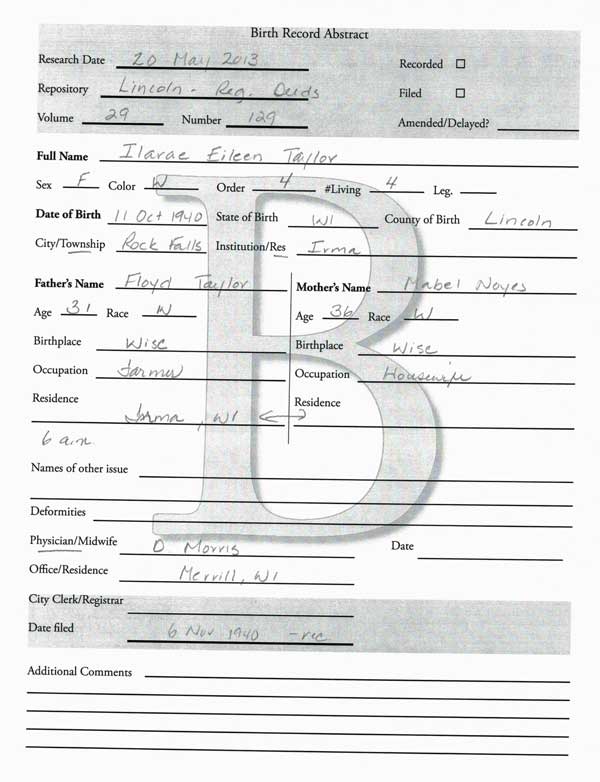 Birth Record Abstract
Research Date 20 May 2013 Recorded
Repository Lincoln - Reg. Deeds Filed
Volume 29 Number 129 Amended/Delayed?
Full Name Ilarae Eileen Taylor
Sex F Color W Order 4 #Living 4 Leg.
Date of Birth 11 Oct 1940 State of Birth WI County of Birth Lincoln
City/Township Rock Falls Institution/Res Irma
Father's Name Floyd Taylor Mother's Name Mabel Noyes
Age 31 Race W Age 36 Race W
Birthplace Wisc Birthplace Wisc
Occupation farmer Occupation Housewife
Residence Residence
Irma, WI
6 a.m.
Names of other issue
Deformities
Physician/Midwife D. Morris Date
Office/Residence Merrill, WI
City Clerk/Registrar
Date filed 6 Nov 1940 - rec
Additional Comments
B